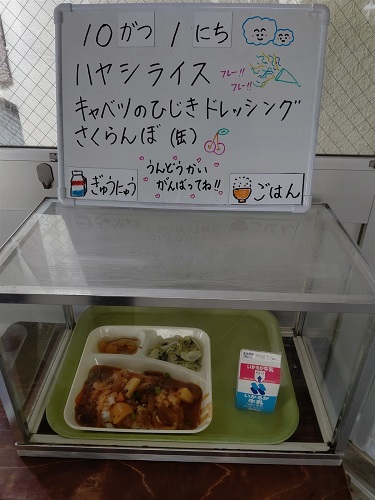 10がつ1にち
ハヤシライス
フレー!!
フレー!!
キャベツのひじきドレッシング
さくらんぼ(缶)
うんどうかい
がんばってね!!
ぎゅうにゅう
ごはん
いかるが牛乳
いかるが
牛乳